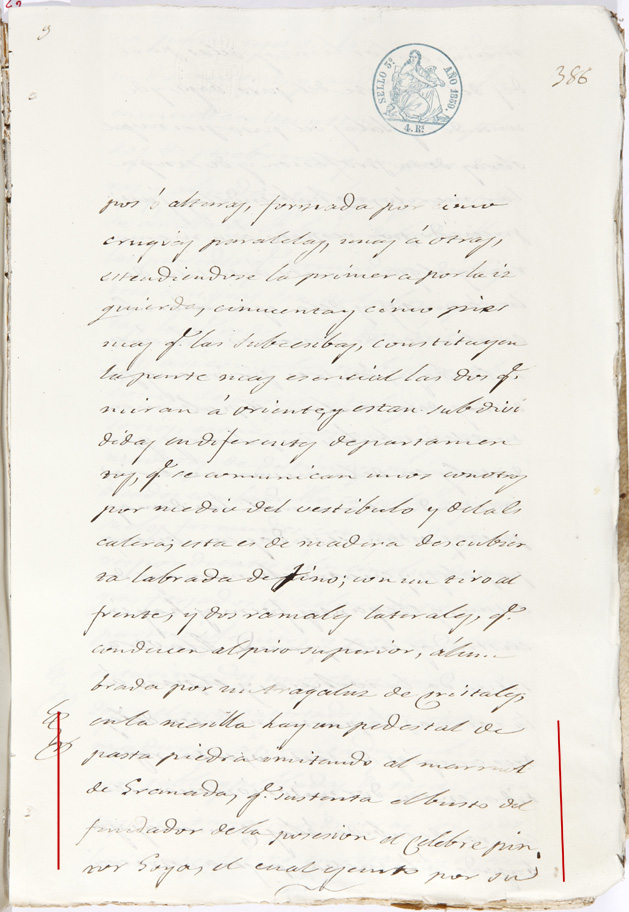 386
SELLO 3º AÑO 1859
4. Rˢ
pos ó alturas, formada por cinco
crugias paralelas, unas á otras,
estendiendose la primera por la iz
quierda, cincuenta y cinco pies
mas qᵉ las subcesibas, constituyen
la parte mas esencial las dos qᵉ
miran á oriente, y estan subdivi
didas en diferentes departamen
tos, qᵉ se comunican unos con otros
por medio del vestibulo y de la es
calera; esta es de madera descubier
ta labrada de pino; con un tiro al
frente, y dos ramales laterales, qᵉ
conducen al piso superior, alum
brada por un tragaluz de cristales,
en la mesilla hay un pedestal de
pasta piedra imitando al marmol
de Granada, qᵉ sustenta el busto del
fundador de la posesion el celebre pin
tor Goya, el cual ejecuto por su